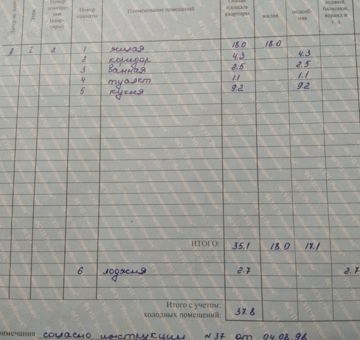 Этаж
Номер
комнаты
Наименование помещений
Общая
площадь
квартиры
жилая
подсоб-
ная
лоджий,
балконов,
веранд и
т. д.
2 I 2 1 жилая 18.0 18.0
2 коридор 4.3 4.3
3 ванная 2.5 2.5
4 туалет 1.1 1.1
5 кухня 9.2 9.2
ИТОГО: 35.1 18.0 17.1
6 лоджия 2.7 2.7
Итого с учетом:
холодных помещений: 37.8
римечания согласно инструкции №37 от 04.08.98